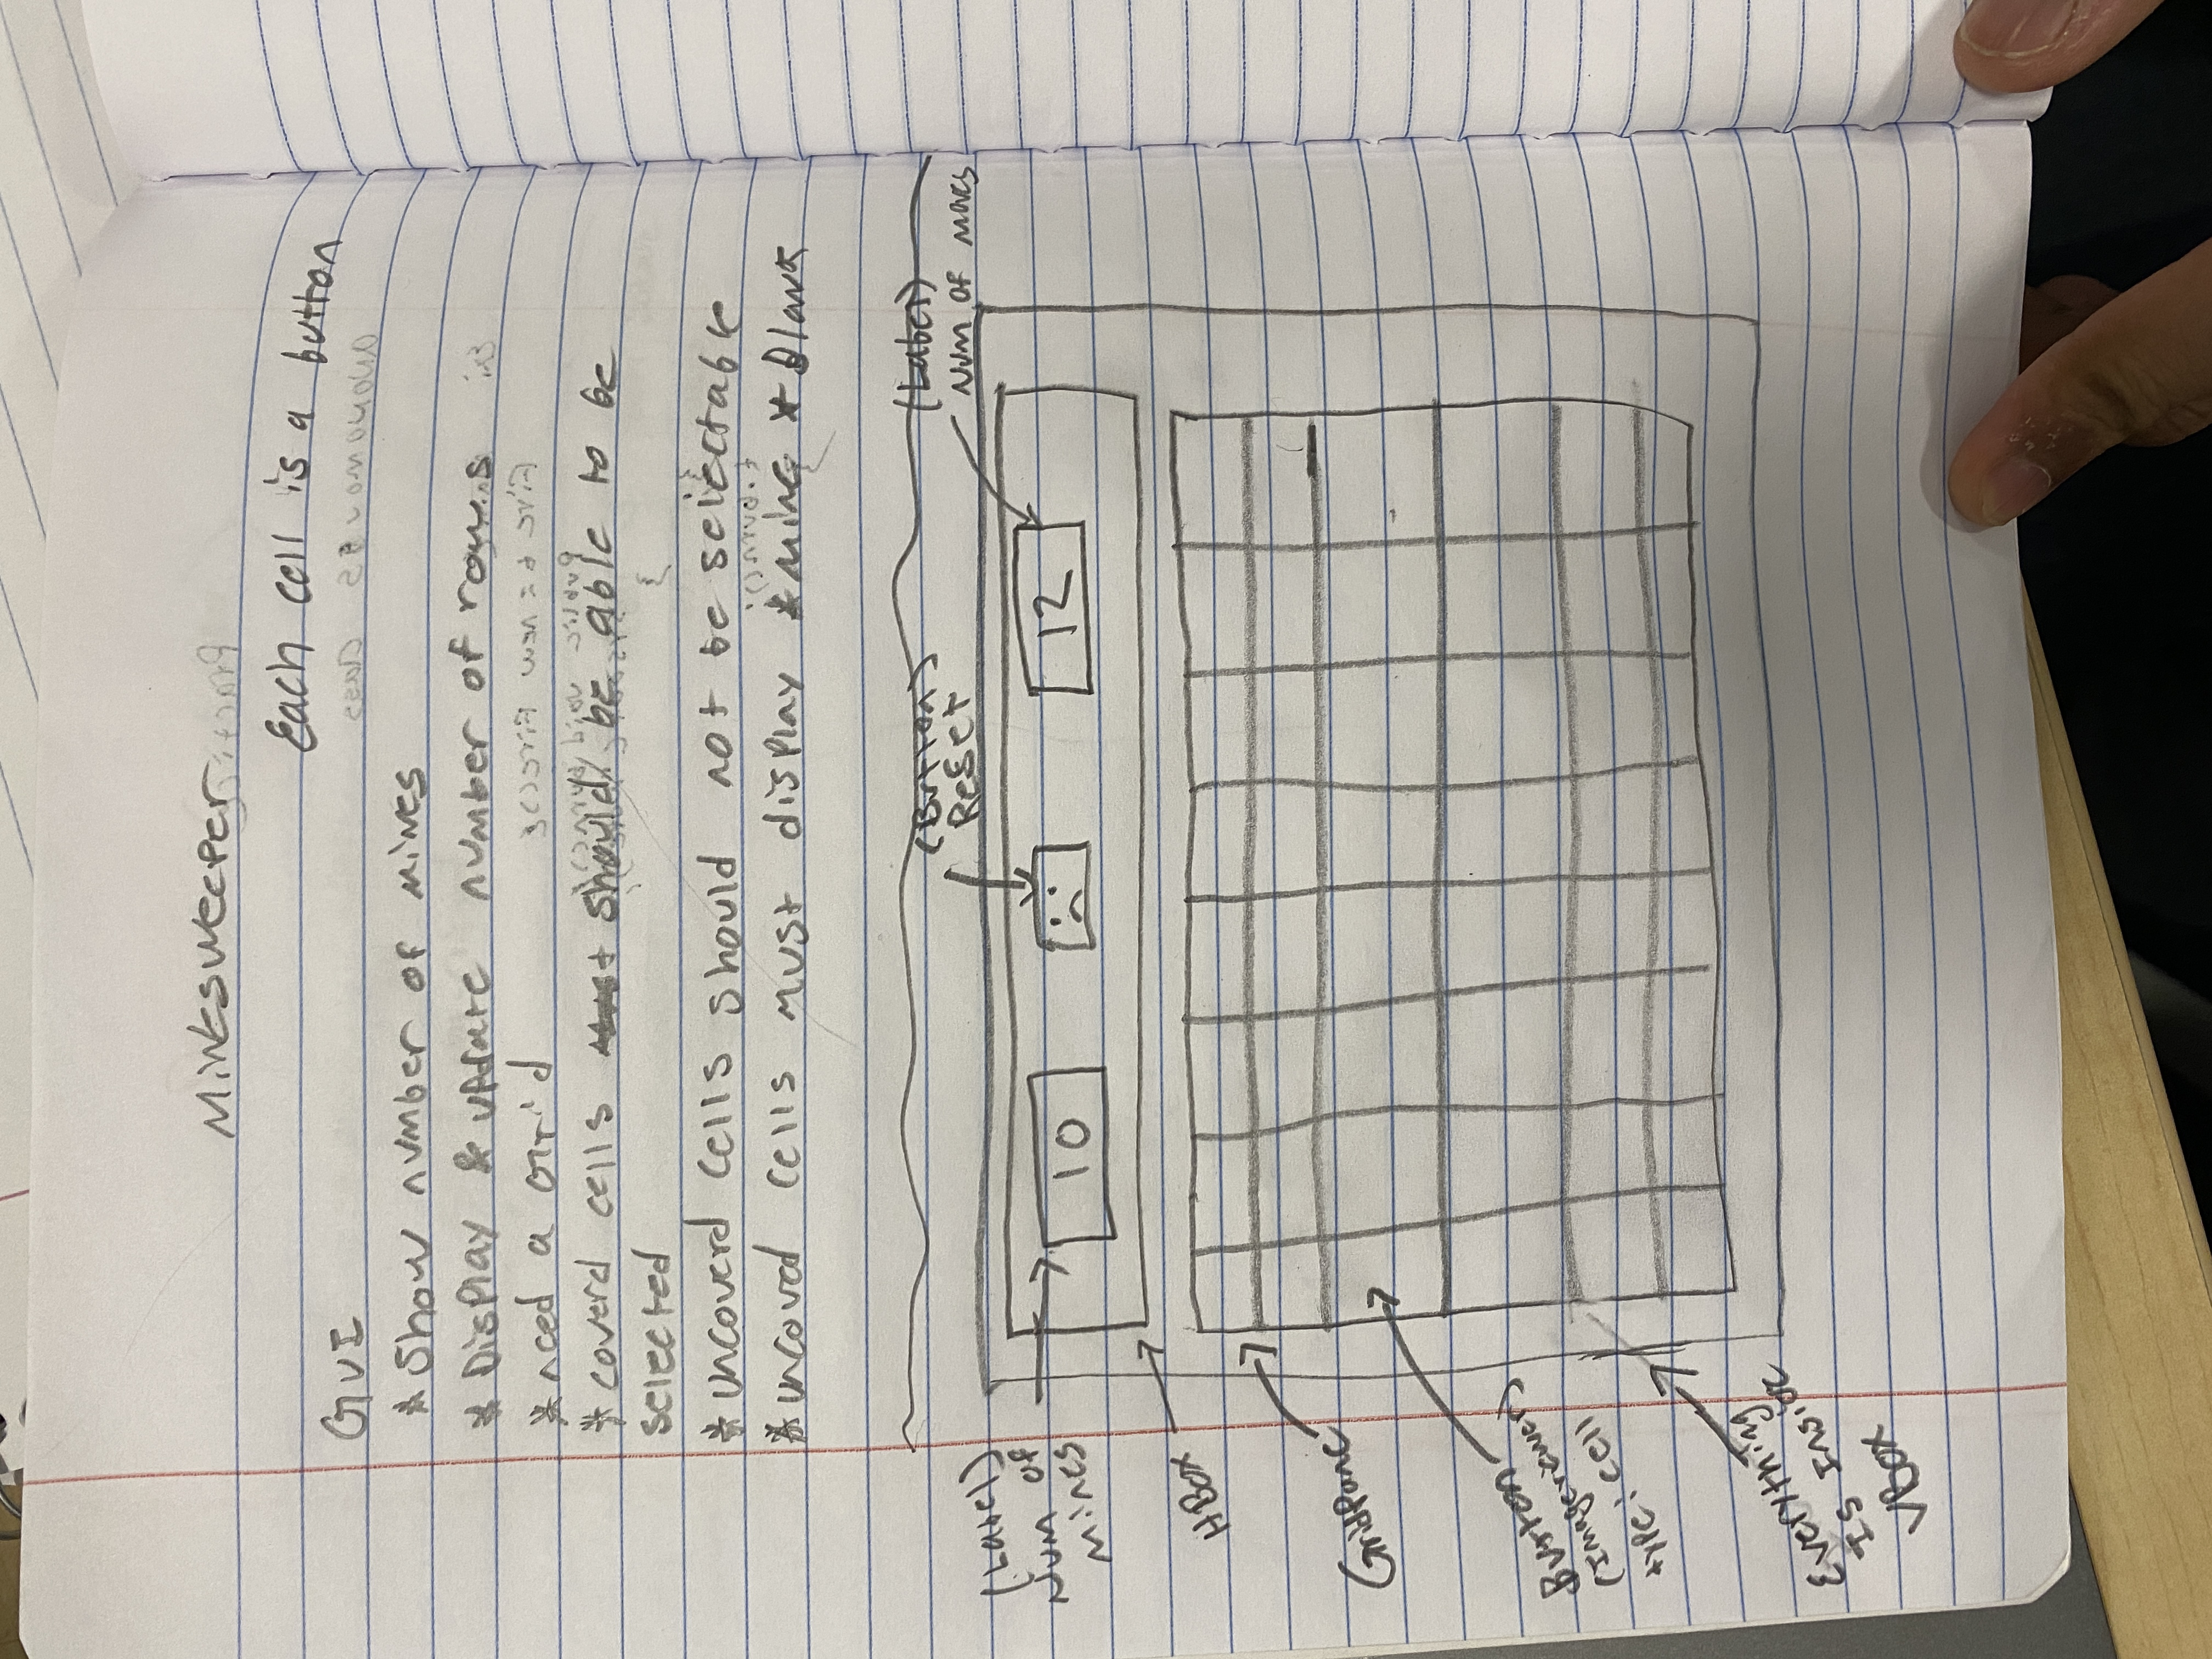 Minesweeper
Each cell is a button
GUI
* Show number of mines
* Display & update number of rows
* need a Grid
* coverd cells should be able to be
selected
* uncoverd cells should not be selectable
* uncoverd cells must display * mine * Blank
(Button)
Reset
(Label)
Num of moves
(Label)
Num of
mines
10
12
HBox
GridPane
Button
(Imageviewer)
type: cell
Everything
Is Inside
VBox